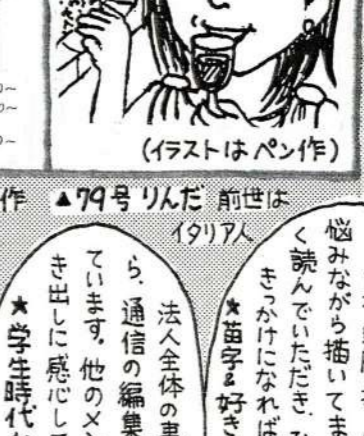 (イラストは ペン作)
作 ▲79号 りんだ 前世は
イタリア人
悩みながら描いてま
く読んでいただき、ひ
きっかけになれば
★苗字&好き
法人全体の事
ら、通信の編集
ています。他のメン
き出しに感心して
★学生時代